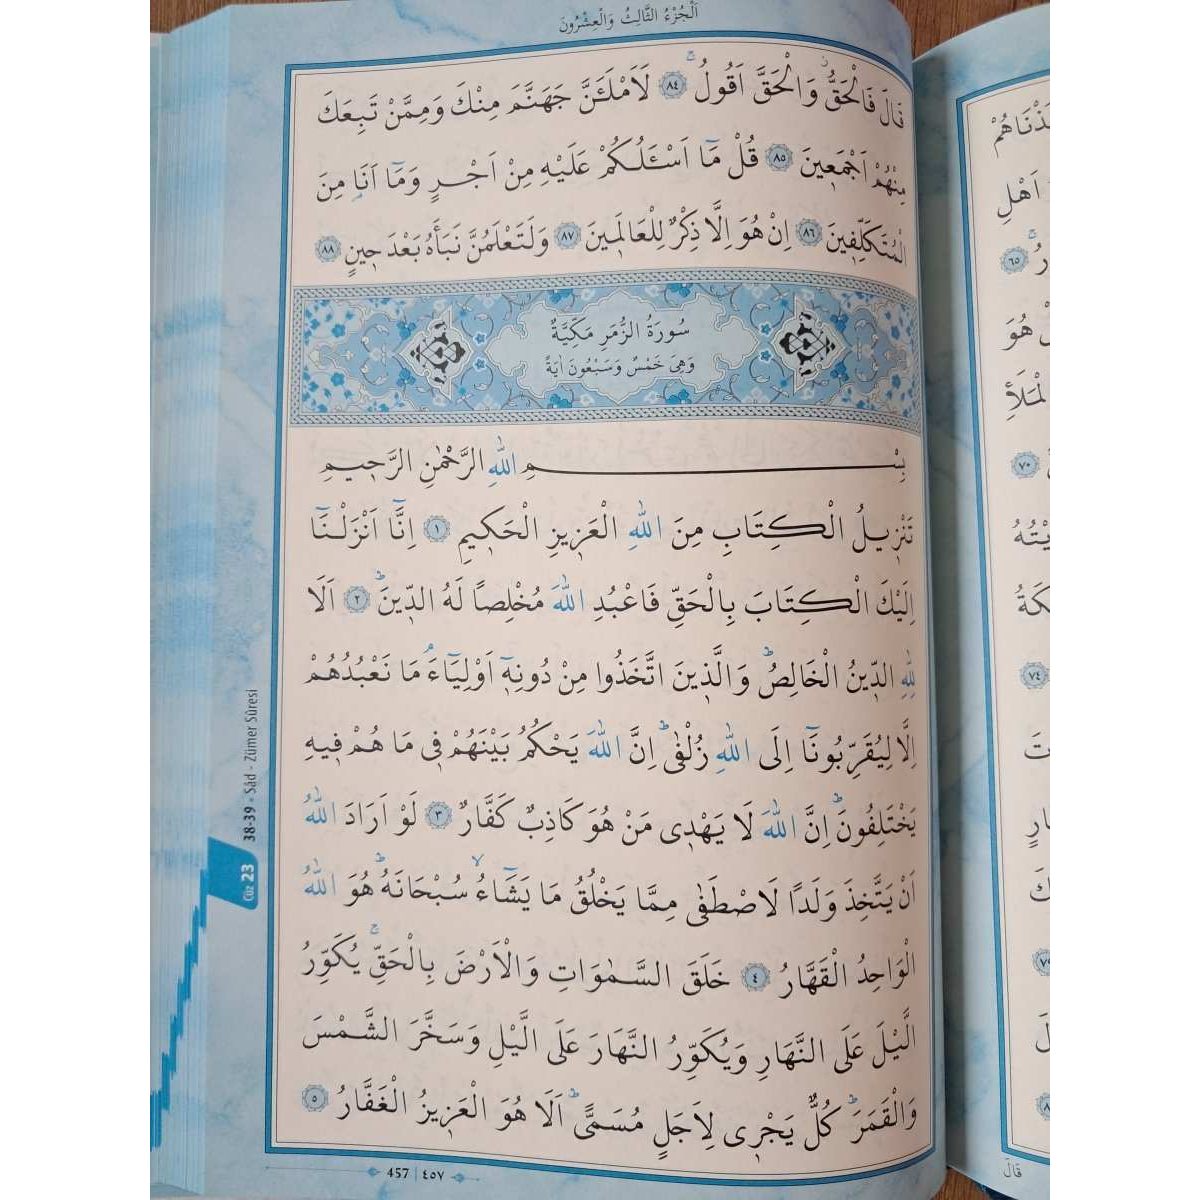 اَلْجُزْءُ الثَّالِثُ وَالْعِشْرُونَ
قَالَ فَالْحَقُّۘ وَالْحَقَّ اَقُولُۚ ﴿٨٤﴾ لَاَمْلَـَٔنَّ جَهَنَّمَ مِنْكَ وَمِمَّنْ تَبِعَكَ
مِنْهُمْ اَجْمَعينَ ﴿٨٥﴾ قُلْ مَٓا اَسْـَٔلُكُمْ عَلَيْهِ مِنْ اَجْرٍ وَمَٓا اَنَا۬ مِنَ
الْمُتَكَلِّفينَ ﴿٨٦﴾ اِنْ هُوَ اِلَّا ذِكْرٌ لِلْعَالَمينَ ﴿٨٧﴾ وَلَتَعْلَمُنَّ نَبَاَهُ بَعْدَ حينٍ ﴿٨٨﴾
سُورَةُ الزُّمَرِ مَكِّيَّةٌ
وَهِيَ خَمْسٌ وَسَبْعُونَ اٰيَةً
بِسْمِ اللّٰهِ الرَّحْمٰنِ الرَّحيمِ
تَنْزيلُ الْكِتَابِ مِنَ اللّٰهِ الْعَزيزِ الْحَكيمِ ﴿١﴾ اِنَّٓا اَنْزَلْنَٓا
اِلَيْكَ الْكِتَابَ بِالْحَقِّ فَاعْبُدِ اللّٰهَ مُخْلِصًا لَهُ الدّينَۜ ﴿٢﴾ اَلَا
لِلّٰهِ الدّينُ الْخَالِصُۜ وَالَّذينَ اتَّخَذُوا مِنْ دُونِه۪ٓ اَوْلِيَٓاءَۢ مَا نَعْبُدُهُمْ
اِلَّا لِيُقَرِّبُونَٓا اِلَى اللّٰهِ زُلْفٰىۜ اِنَّ اللّٰهَ يَحْكُمُ بَيْنَهُمْ في مَا هُمْ فيهِ
يَخْتَلِفُونَۜ اِنَّ اللّٰهَ لَا يَهْدي مَنْ هُوَ كَاذِبٌ كَفَّارٌ ﴿٣﴾ لَوْ اَرَادَ اللّٰهُ
اَنْ يَتَّخِذَ وَلَدًا لَاصْطَفٰى مِمَّا يَخْلُقُ مَا يَشَٓاءُۙ سُبْحَانَهُۜ هُوَ اللّٰهُ
الْوَاحِدُ الْقَهَّارُ ﴿٤﴾ خَلَقَ السَّمٰوَاتِ وَالْاَرْضَ بِالْحَقِّۚ يُكَوِّرُ
الَّيْلَ عَلَى النَّهَارِ وَيُكَوِّرُ النَّهَارَ عَلَى الَّيْلِ وَسَخَّرَ الشَّمْسَ
وَالْقَمَرَۜ كُلٌّ يَجْري لِاَجَلٍ مُسَمًّىۜ اَلَا هُوَ الْعَزيزُ الْغَفَّارُ ﴿٥﴾
457 | ٤٥٧
Cüz 23
38-39 - Sâd - Zümer Sûresi
اَهْلِ
٦٥
هُوَ
٧٠
٧٤
قَالَ